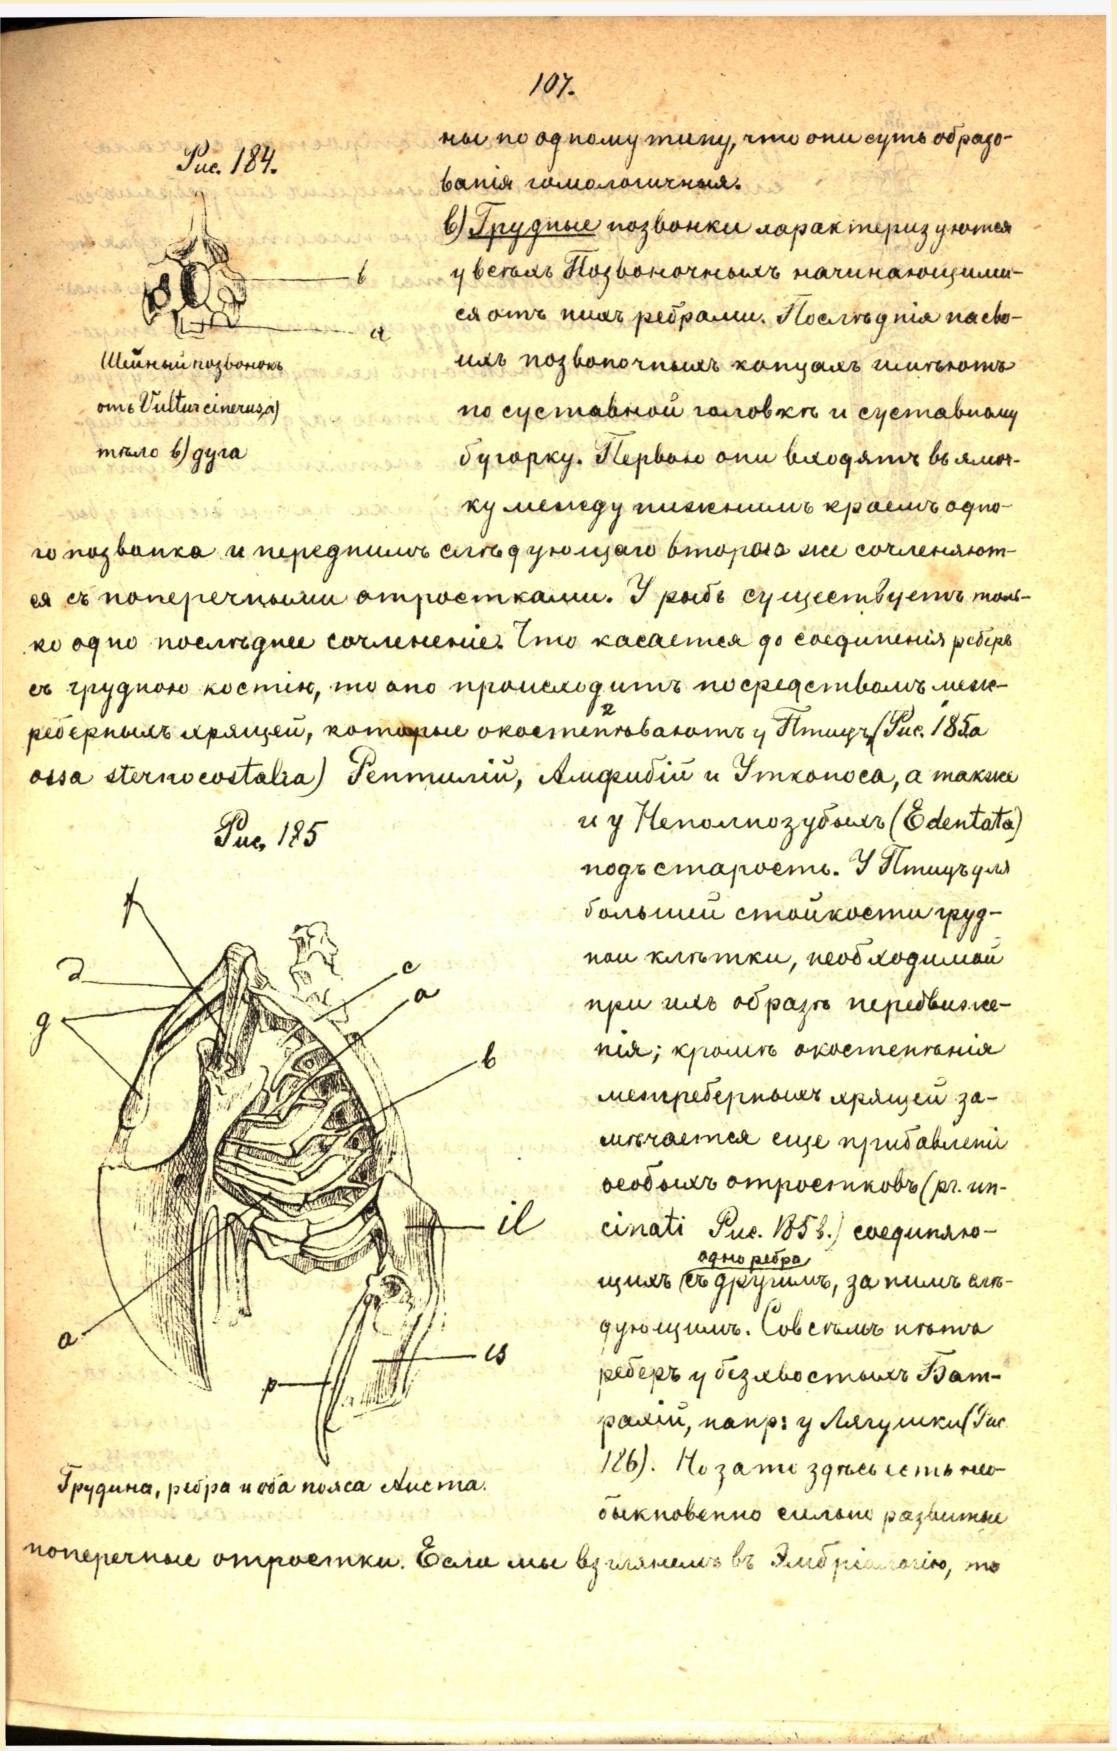 107.
ны по одному типу, что они суть образо-
ванія гомологичныя.
Рис. 184.
b
a
Шейный позвонокъ
отъ Vultur cinerus, а)
тѣло в) дуга
в) Грудные позвонки характеризуются
у всѣхъ Позвоночныхъ начинающими-
ся отъ нихъ ребрами. Послѣднія на сво-
ихъ позвоночныхъ концахъ имѣютъ
по суставной головкѣ и суставному
бугорку. Первою они входятъ въ ямоч-
ку между нижнимъ краемъ одно-
го позвонка и переднимъ слѣдующаго второго же сочленяют-
ся съ поперечными отростками. У рыбъ существуетъ толь-
ко одно послѣднее сочлененіе. Что касается до соединенія реберъ
съ грудною костію, то оно происходитъ посредствомъ меж-
реберныхъ хрящей, которые окостенѣваютъ у Птицъ (Рис. 185.а
ossa sternocostalia) Рептилій, Амфибій и Утконоса, а также
и у Неполнозубыхъ (Edentata)
подъ старость. У Птицъ для
большей стойкости груд-
ной клѣтки, необходимой
при ихъ образѣ передвиже-
нія; кромѣ окостенѣнія
межреберныхъ хрящей за-
мѣчается еще прибавленіе
особыхъ отростковъ (pr. un-
cinati Рис. 185 b.) соединяю-
одно ребро
щихъ съ другимъ, за нимъ слѣ-
дующимъ. Совсѣмъ нѣтъ
реберъ у безхвостыхъ Бат-
рахій, напр: у Лягушки (Рис
186). Но зато здѣсь есть нео-
быкновенно сильно развитые
Рис. 185
f
d
g
c
a
b
il
a
is
p
Грудина, ребра и оба пояса Аиста.
поперечные отростки. Если мы взглянемъ въ Эмбріологію, то